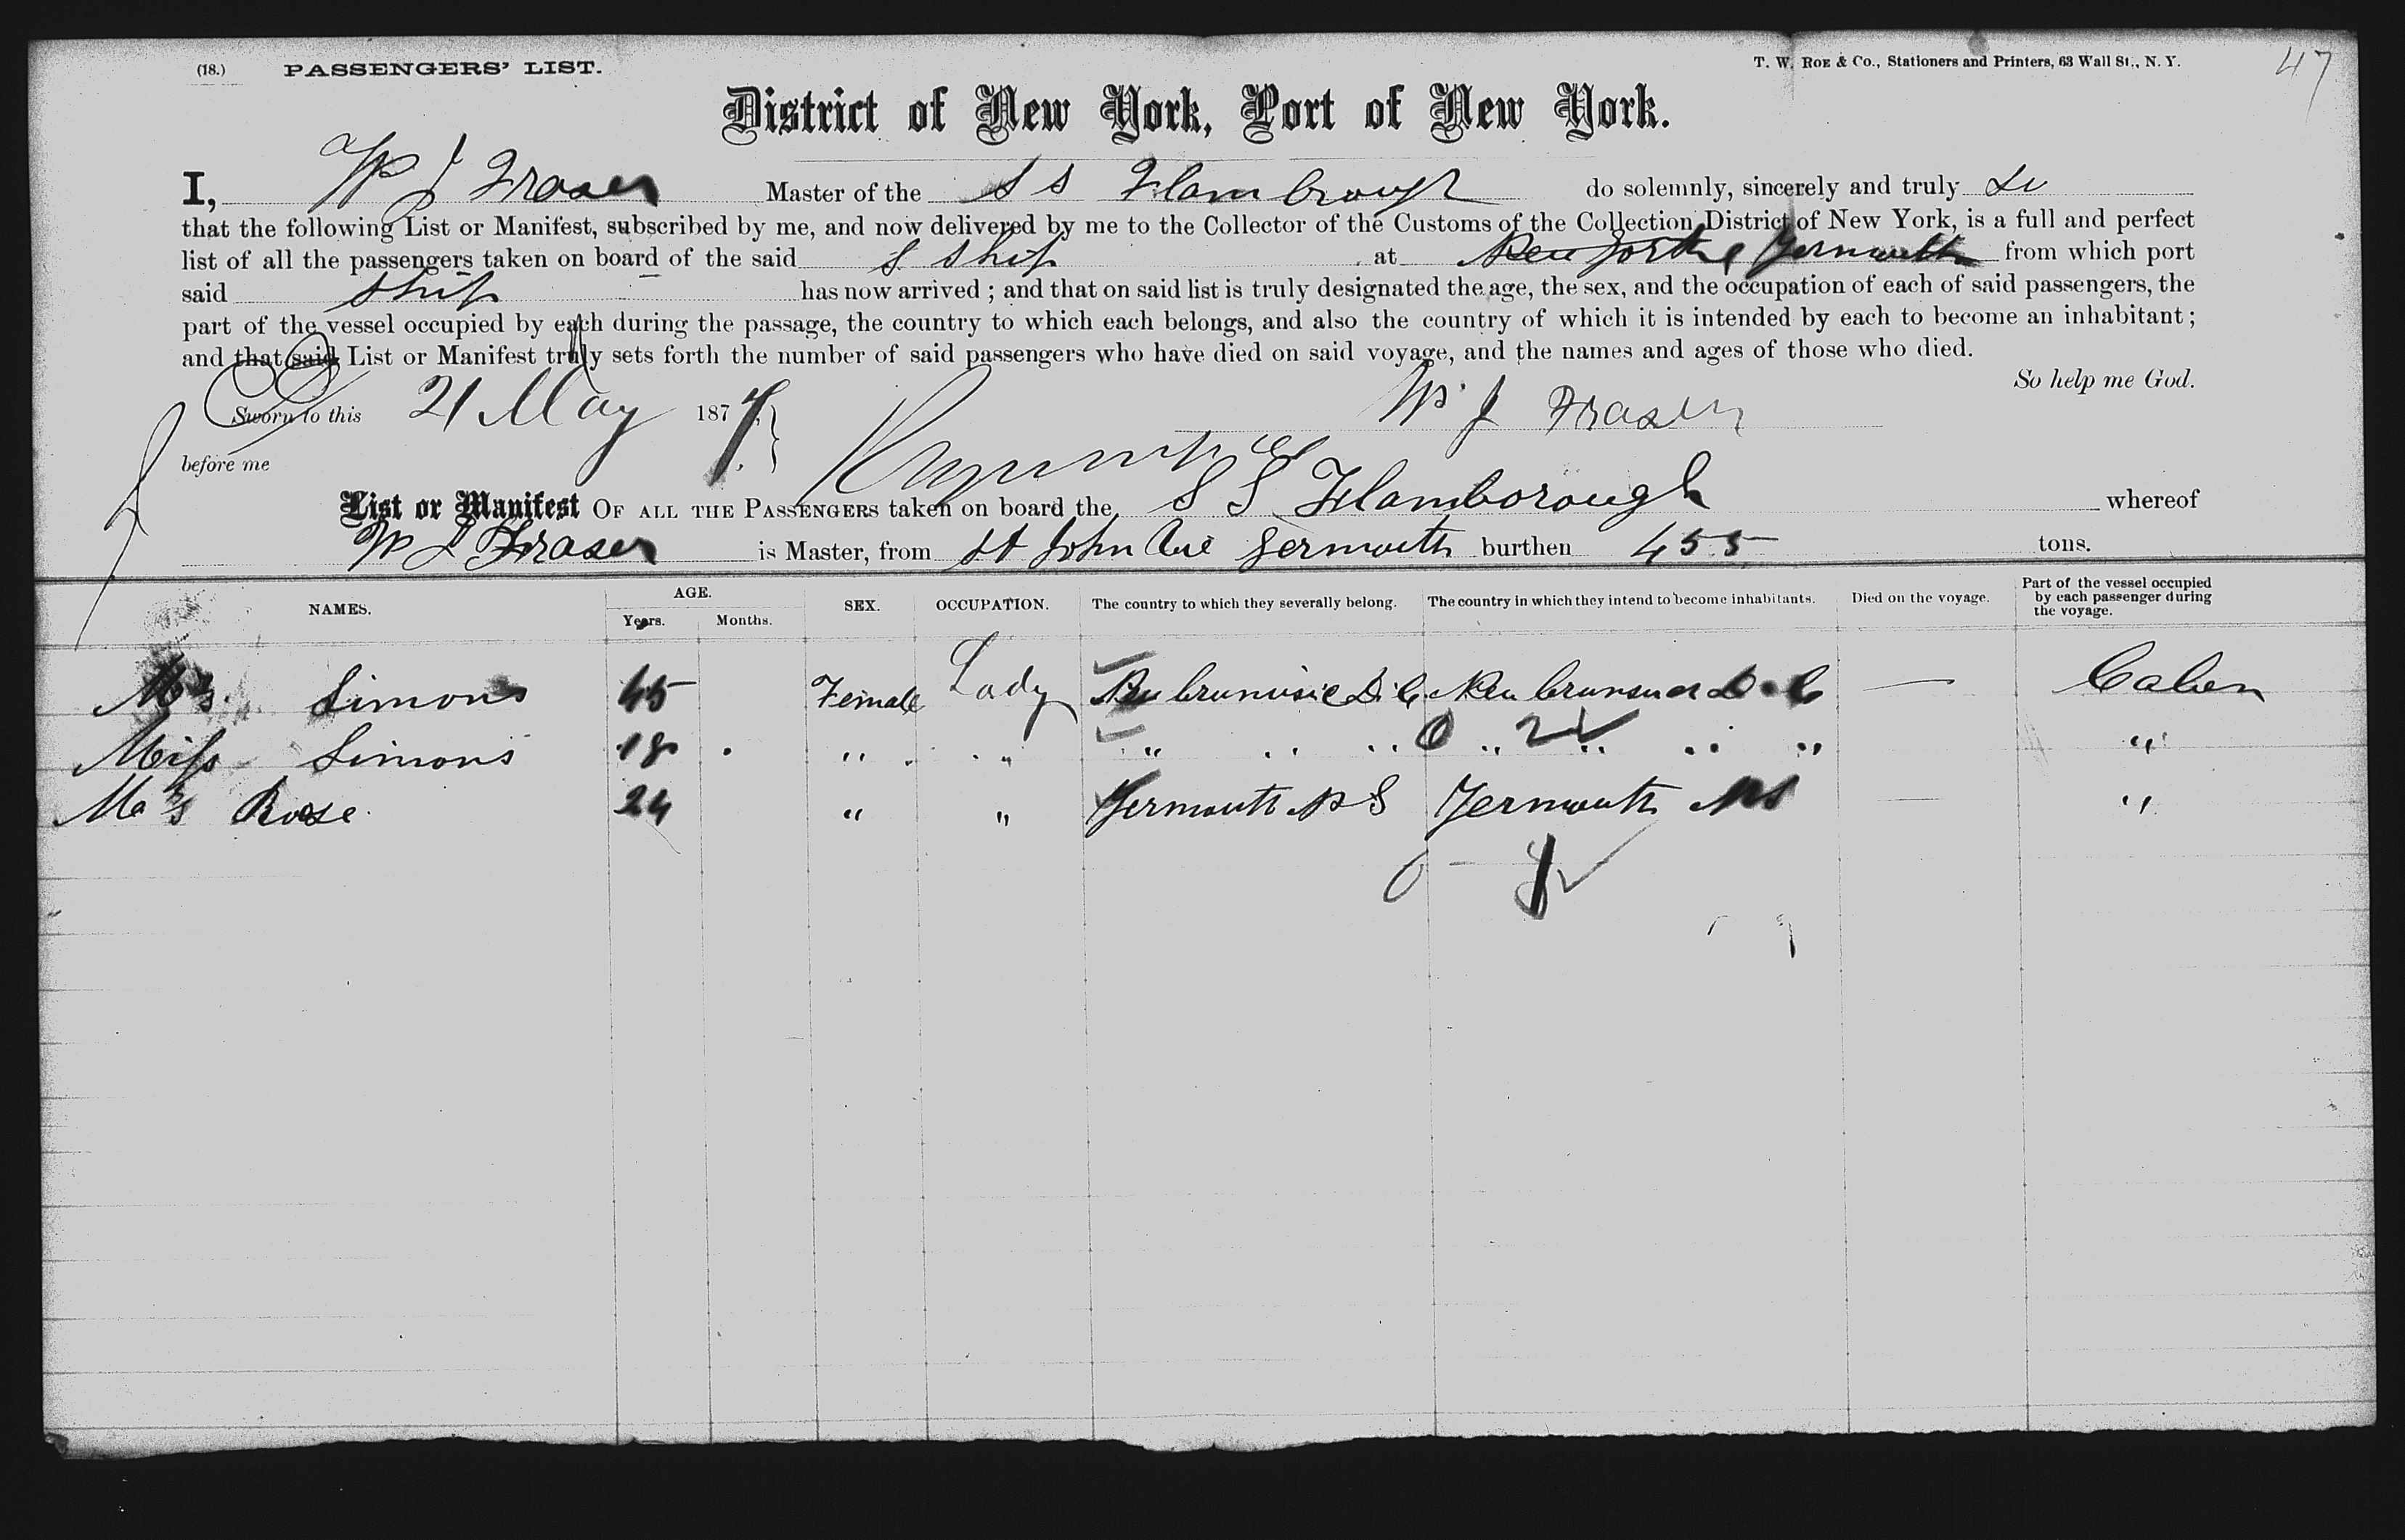 (18.) PASSENGERS' LIST. T. W. ROE & Co., Stationers and Printers, 63 Wall St., N. Y. 47
District of New York, Port of New York.
I, W J Fraser Master of the S S Flambrough do solemnly, sincerely and truly
that the following List or Manifest, subscribed by me, and now delivered by me to the Collector of the Customs of the Collection District of New York, is a full and perfect
list of all the passengers taken on board of the said S Ship at Yermouth from which port
said Ship has now arrived ; and that on said list is truly designated the age, the sex, and the occupation of each of said passengers, the
part of the vessel occupied by each during the passage, the country to which each belongs, and also the country of which it is intended by each to become an inhabitant ;
and that said List or Manifest truly sets forth the number of said passengers who have died on said voyage, and the names and ages of those who died.
So help me God.
Sworn to this 21 May 187 W. J Fraser
before me
List or Manifest OF ALL THE PASSENGERS taken on board the S S Flamborough whereof
W J Fraser is Master, from St John Yermouth burthen 455 tons.
NAMES. AGE. Years. Months. SEX. OCCUPATION. The country to which they severally belong. The country in which they intend to become inhabitants. Died on the voyage. Part of the vessel occupied by each passenger during the voyage.
Mrs. Simons 45 Female Lady — Caben
Miss Simons 18 " " " " " " " " " "
Mrs Rose 24 " " Yermouth N S Yermouth N S — "